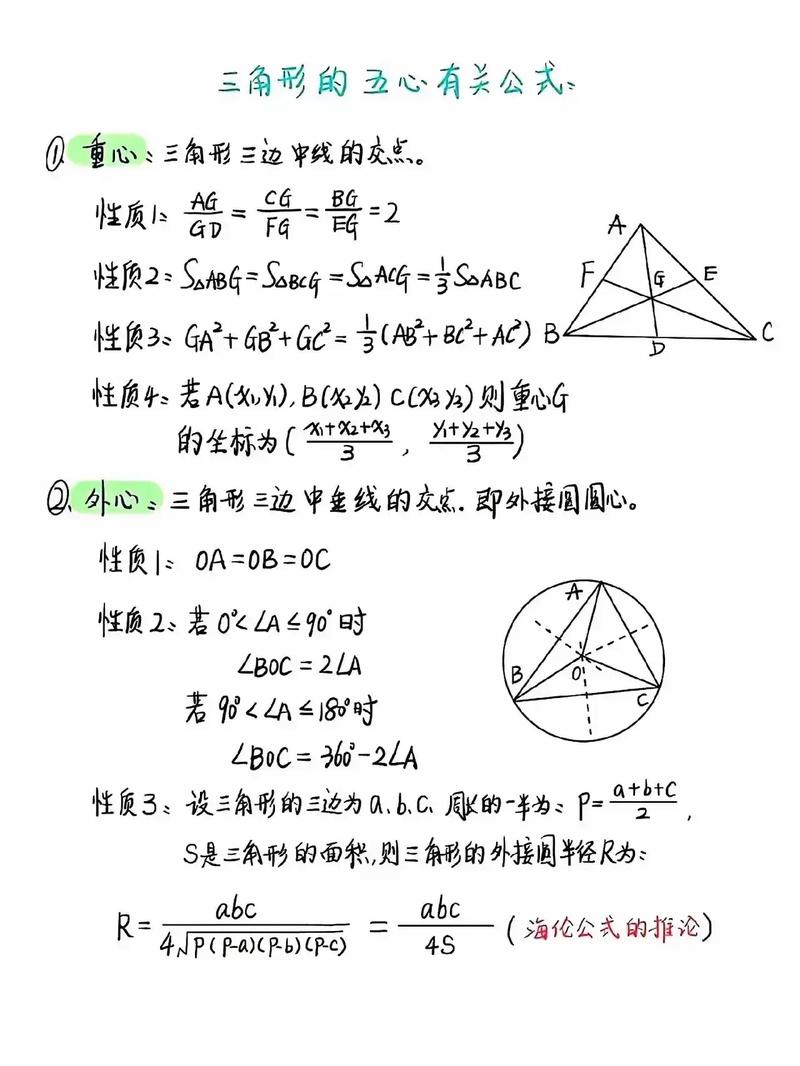 三角形的五心有关公式:
①、重心:三角形三边中线的交点。
性质1: AG/GD = CG/FG = BG/EG = 2
性质2: S△ABG = S△BCG = S△ACG = 1/3 S△ABC
性质3: GA²+GB²+GC² = 1/3(AB²+BC²+AC²)
性质4: 若A(x₁,y₁), B(x₂y₂) C(x₃y₃)则重心G
的坐标为( (x₁+x₂+x₃)/3 , (y₁+y₂+y₃)/3 )
A
F
G
E
B
D
C
②、外心:三角形三边中垂线的交点. 即外接圆圆心。
性质1: OA=OB=OC
性质2: 若0°<∠A≤90°时
∠BOC=2∠A
若90°<∠A≤180°时
∠BOC=360°-2∠A
A
B
O
C
性质3: 设三角形的三边为a、b、c、周长的一半为: P=(a+b+c)/2 ,
S是三角形的面积,则三角形的外接圆半径R为:
R = abc/(4√(P(P-a)(P-b)(P-c))) = abc/4S (海伦公式的推论)